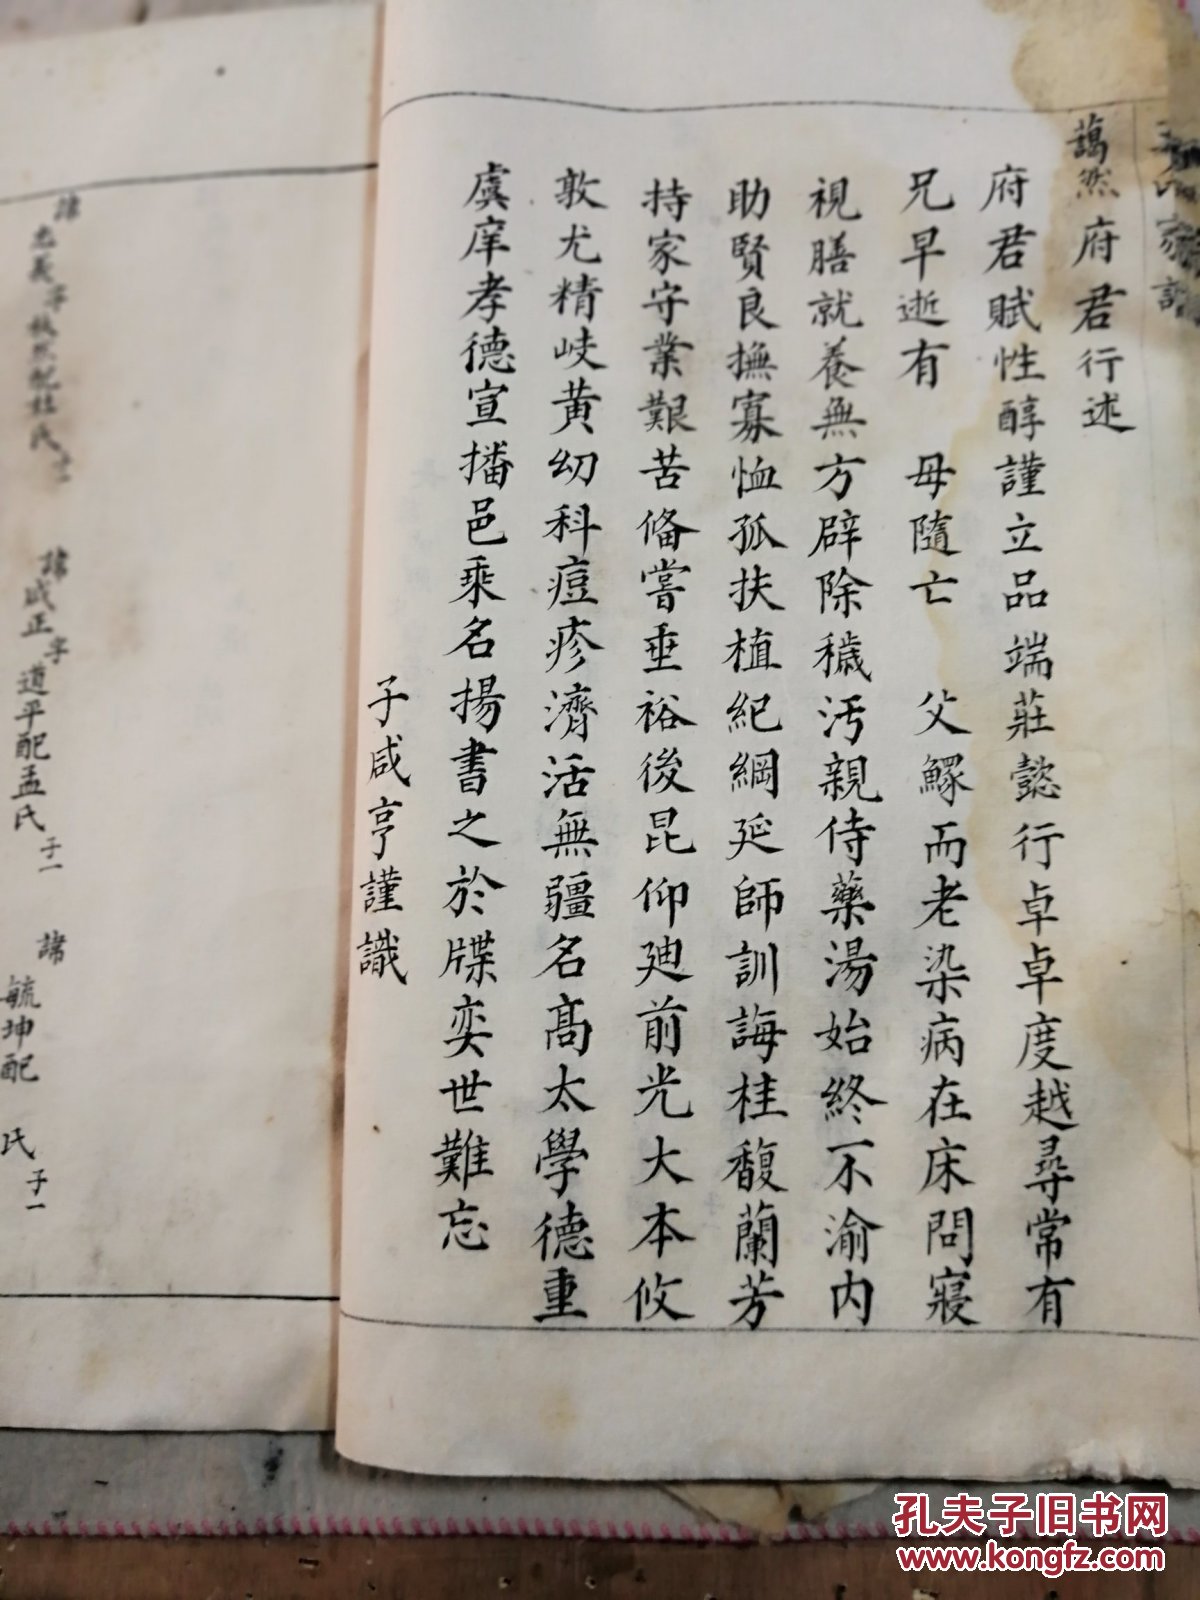 家譜
藹然府君行述
府君賦性醇謹立品端莊懿行卓卓度越尋常有
兄早逝有　母隨亡　父鰥而老染病在床問寢
視膳就養無方辟除穢汚親侍藥湯始終不渝内
助賢良撫寡恤孤扶植紀綱延師訓誨桂馥蘭芳
持家守業艱苦俻嘗垂裕後昆仰廸前光大本攸
敦尤精岐黄幼科痘疹濟活無疆名髙太學德重
虞庠孝德宣播邑乘名揚書之於牒奕世難忘
子咸亨謹識
諱忠義字
配杜氏
諱咸正字道平配孟氏子一
諱毓坤配　氏子一
孔夫子旧书网
www.kongfz.com